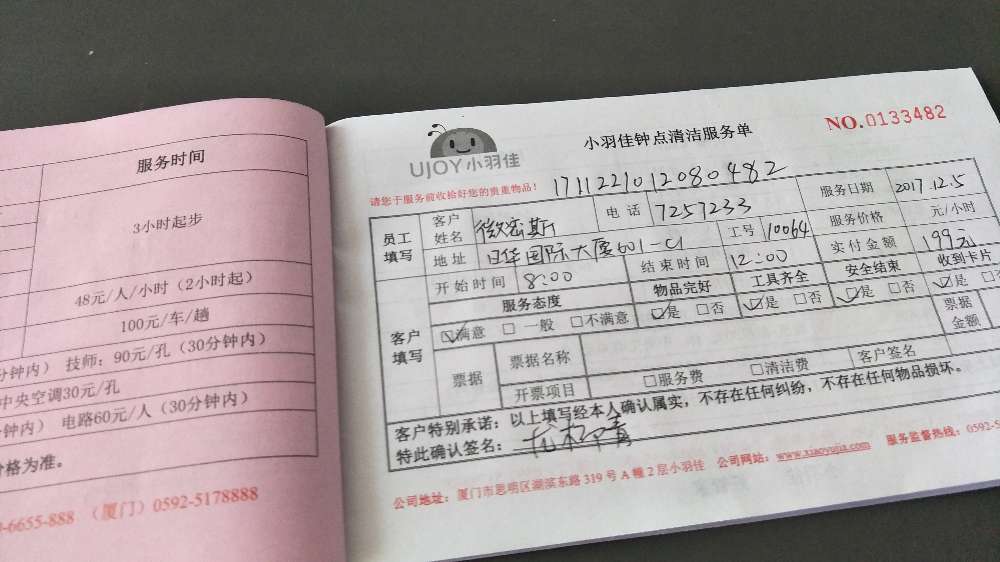 服务时间
3小时起步
48元/人/小时（2小时起）
100元/车/趟
分钟内） 技师：90元/孔（30分钟内）
中央空调30元/孔
分钟内） 电路60元/人（30分钟内）
价格为准。
0-6655-888 （厦门）0592-5178888
UJOY小羽佳
小羽佳钟点清洁服务单
NO.0133482
请您于服务前收拾好您的贵重物品！
1711221012080482
员工填写
客户姓名 微密斯 电话 7257233 服务日期 2017.12.5
地址 日华国际大厦601-C1 工号 10064 服务价格 元/小时
开始时间 8:00 结束时间 12:00 实付金额 199元
客户填写
服务态度 物品完好 工具齐全 安全结束 收到卡片
☑满意 □一般 □不满意 ☑是 □否 ☑是 □否 ☑是 □否 ☑是 □
票据 票据名称 票据金额
开票项目 □服务费 □清洁费 客户签名
客户特别承诺：以上填写经本人确认属实，不存在任何纠纷，不存在任何物品损坏。
特此确认签名：
公司地址：厦门市思明区湖滨东路319号A幢2层小羽佳 公司网站：www.xiaoyujia.com 服务监督热线：0592-5